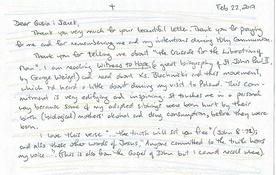 + Feb 22, 2019
Dear Gosia & Janet,
Thank you very much for your beautiful letter. Thank you for praying
for me and for remembering me and my intentions during Holy Communion.
Thank you for telling me about "the Crusade for the Liberation of
Man". I am reading Witness to Hope (a great biography of St. John Paul II,
by George Weigel) and read about Ks. Blachnicki and this movement,
which I'd heard a little about during my visit to Poland. This com-
mitment is very edifying and inspiring. It touches me in a personal
way because some of my adopted siblings were born hurt by their
birth (biological) mothers' alcohol and drug consumption, before they were
born.
I love this verse "...the truth will set you free" (John 8:32);
and also those other words of Jesus, "Anyone committed to the truth hears
my voice". (This is also from the Gospel of John but I cannot recall where).